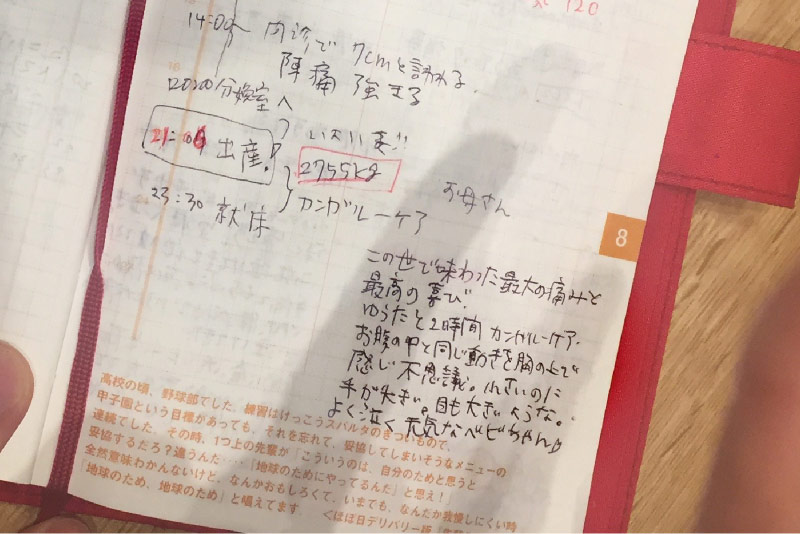 120
14:00〜 内診で 7cmと言われる。
陣痛 強まる
2020 分娩室へ
21:06 出産!
いたい 妻!!
2755kg
23:30 就床
カンガルーケア
お母さん
8
この世で味わった最大の痛みと
最高の喜び!
ゆうたと2時間 カンガルーケア.
お腹の中と同じ動きを胸の上で
感じ 不思議。小さいのに
手が大きい。目も大きいような。
よく泣く 元気なベビちゃん
高校の頃、野球部でした。練習はけっこうスパルタのきついもので、
甲子園という目標があっても、それを忘れて、妥協してしまいそうなメニューの
連続でした。その時、1つ上の先輩が「こういうのは、自分のためと思うと
妥協するだろ?違うんだ…『地球のためにやってるんだ』と思え!
全然意味わかんないけど、なんかおもしろくて、いまでも、なんだか我慢しにくい時
「地球のため、地球のため」と唱えてます。 <ほぼ日デリバリー版